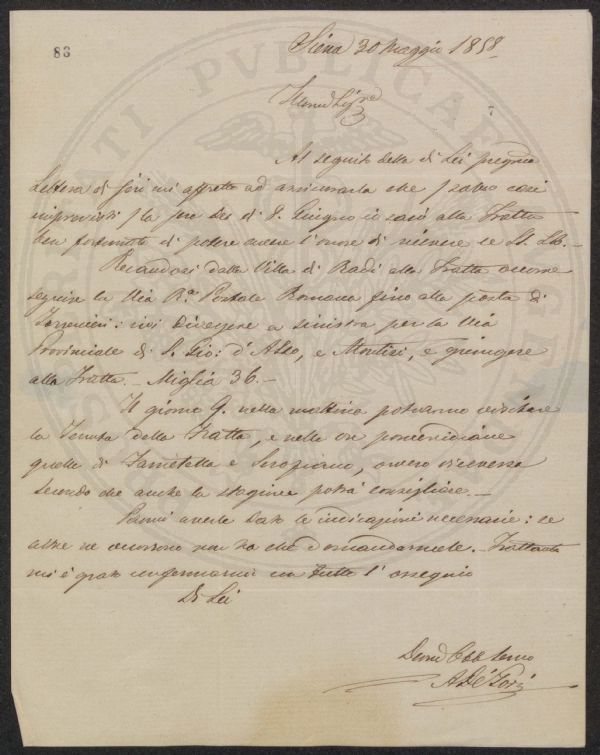 83
Siena 30 Maggio 1858
7
Al seguito della di Lei pregma
Lettera di jeri mi affretto ad assicurarla che / salvo casi
imprevisti / la sera dei di 8. Giugno io sarò alla Fratta
ben fortunato di potere avere l'onore di ricevere le LL. LL. -
Recandosi dalla Villa di Radi alla Fratta occorre
seguire la Via Ra. Postale Romana fino alla posta di
Torrenieri: ivi divergere a sinistra per la Via
Provinciale di S. Gio: d'Asso, e Montisi, e giungere
alla Fratta. - Miglia 36. -
Il giorno 9. nella mattina potranno visitare
la Tenuta della Fratta, e nelle ore pomeridiane
quelle di e , ovvero viceversa
secondo che anche la stagione potrà consigliare. -
Parmi averle dato le indicazioni necessarie: se
altre ne occorrono non ha che domandarmele. Frattanto
mi è grato confermarmi con tutto l'ossequio
Di Lei
Devmo Obb Servo